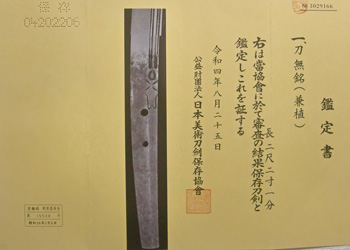 鑑定書
一、刀 無銘(兼植)
長 二尺二寸一分
右は當協會に於て審査の結果保存刀剣と
鑑定しこれを証する
令和四年八月二十五日
公益財團法人 日本美術刀剣保存協會
保存
04202206
№ 1029166